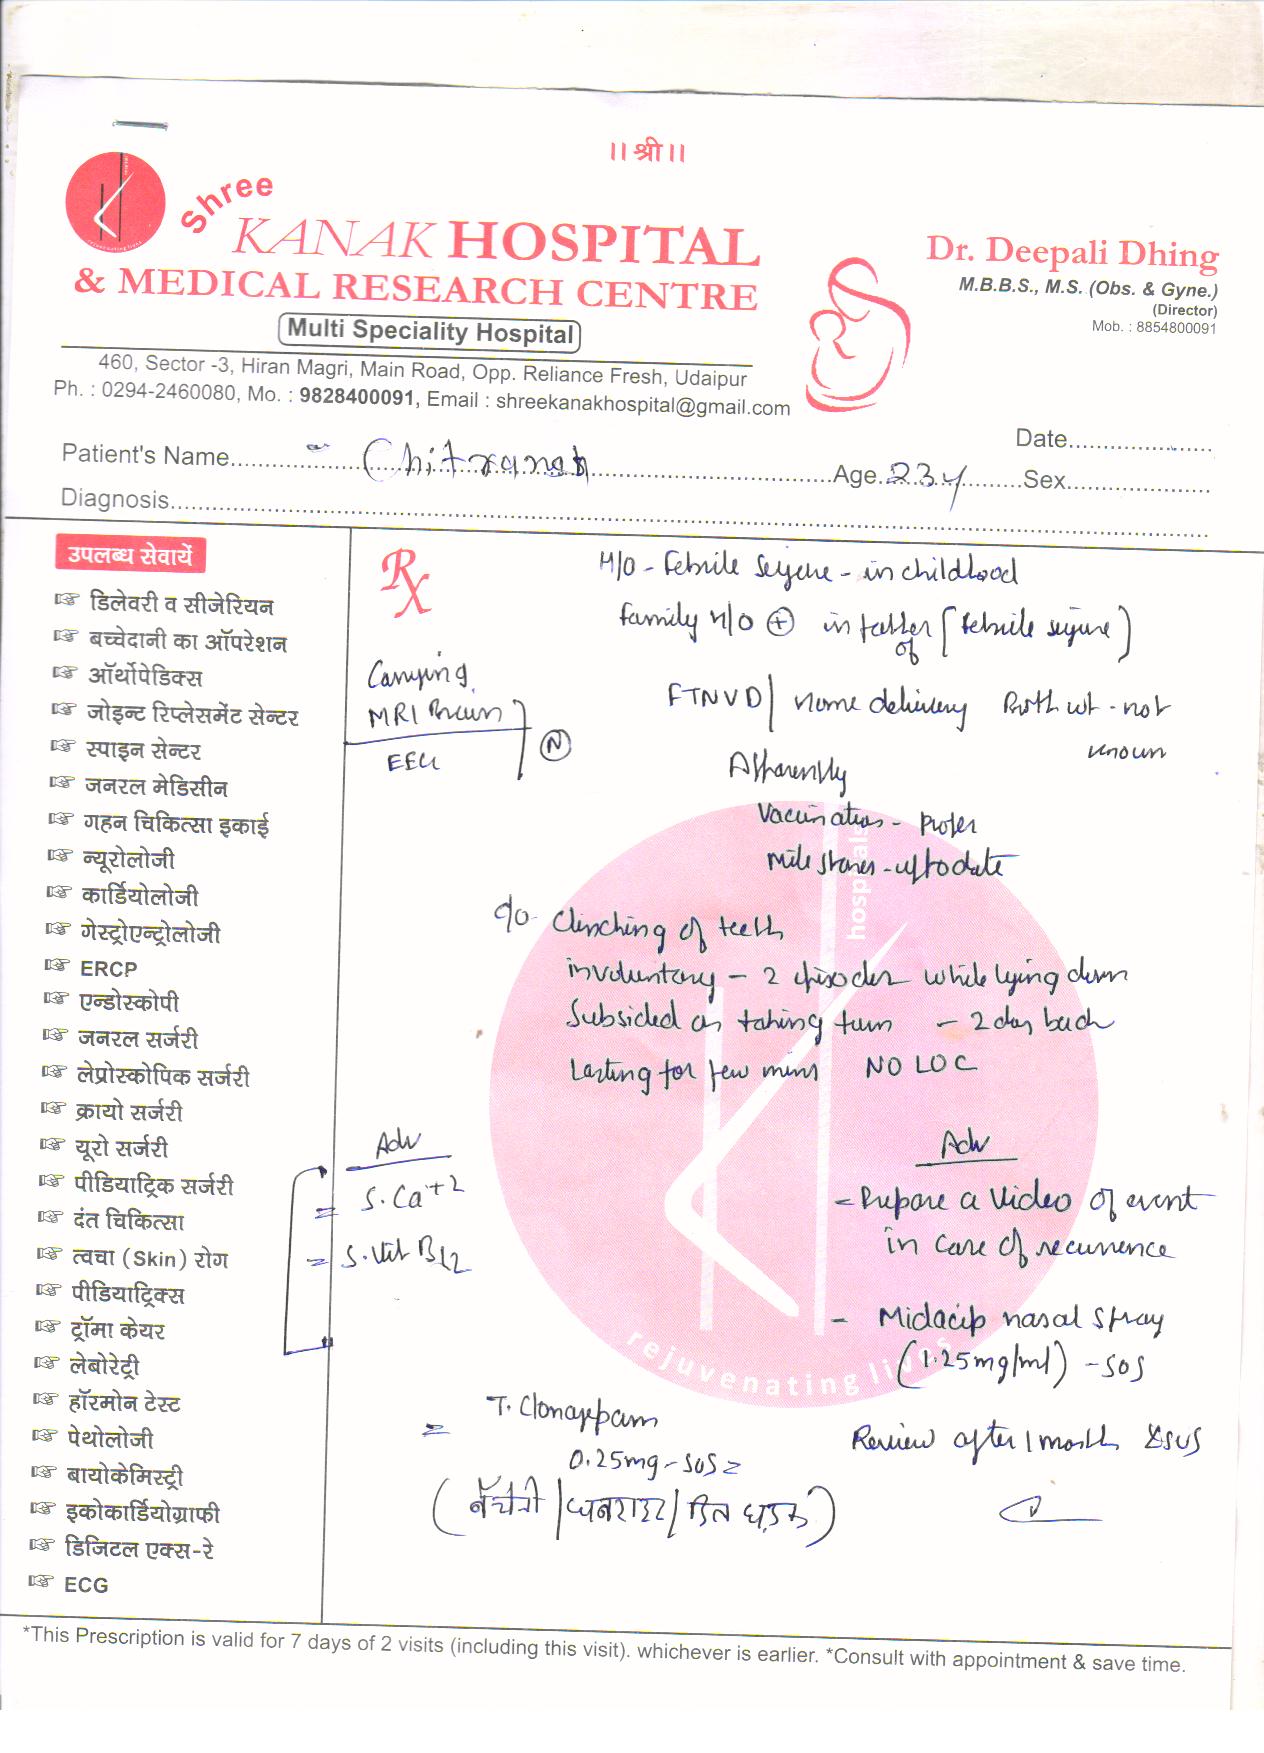 ।। श्री ।।
Shree
KANAK HOSPITAL
& MEDICAL RESEARCH CENTRE
Multi Speciality Hospital
460, Sector -3, Hiran Magri, Main Road, Opp. Reliance Fresh, Udaipur
Ph. : 0294-2460080, Mo. : 9828400091, Email : shreekanakhospital@gmail.com
Dr. Deepali Dhing
M.B.B.S., M.S. (Obs. & Gyne.)
(Director)
Mob. : 8854800091
Date
Patient's Name Chitransh Age 23y Sex
Diagnosis
उपलब्ध सेवायें
डिलेवरी व सीजेरियन
बच्चेदानी का ऑपरेशन
ऑर्थोपेडिक्स
जोइन्ट रिप्लेसमेंट सेन्टर
स्पाइन सेन्टर
जनरल मेडिसीन
गहन चिकित्सा इकाई
न्यूरोलोजी
कार्डियोलोजी
गेस्ट्रोएन्ट्रोलोजी
ERCP
एन्डोस्कोपी
जनरल सर्जरी
लेप्रोस्कोपिक सर्जरी
क्रायो सर्जरी
यूरो सर्जरी
पीडियाट्रिक सर्जरी
दंत चिकित्सा
त्वचा (Skin) रोग
पीडियाट्रिक्स
ट्रॉमा केयर
लेबोरेट्री
हॉरमोन टेस्ट
पेथोलोजी
बायोकेमिस्ट्री
इकोकार्डियोग्राफी
डिजिटल एक्स-रे
ECG
Rx
H/O - Febrile seizure - in childhood
Family H/O + in father of [febrile seizure]
Carrying
MRI Brain
EEG
N
FTNVD / home delivery Birth wt - not
known
Apparently
Vaccination - proper
Milestones - uptodate
c/o Clinching of teeth
involuntary - 2 episodes while lying down
Subsided on taking turn - 2 day back
Lasting for few mins NO LOC
Adv
= S. Ca+2
= S. Vit B12
Adv
- Prepare a video of event
in case of recurrence
- Midacip nasal spray
(1.25mg/ml) - SOS
= T. Clonazepam
0.25mg - SOS =
(बैचेनी / घबराहट / दिल धड़क)
Review after 1 month & SOS
hospitals
rejuvenating lives
*This Prescription is valid for 7 days of 2 visits (including this visit). whichever is earlier. *Consult with appointment & save time.